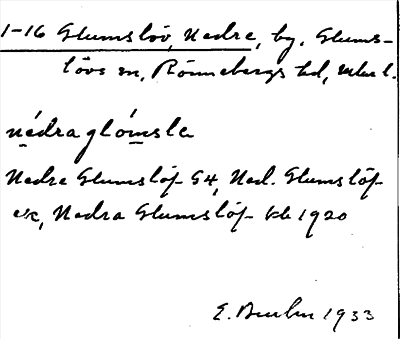 1-16 Glumslöv, Nedre, by, Glums-
lövs sn, Rönnebergs hd, Mlm l.
nédraglómsle
Nedre Glumslöf GK, Ned. Glumslöf
ek, Nedra Glumslöf kb 1920
E. 1933